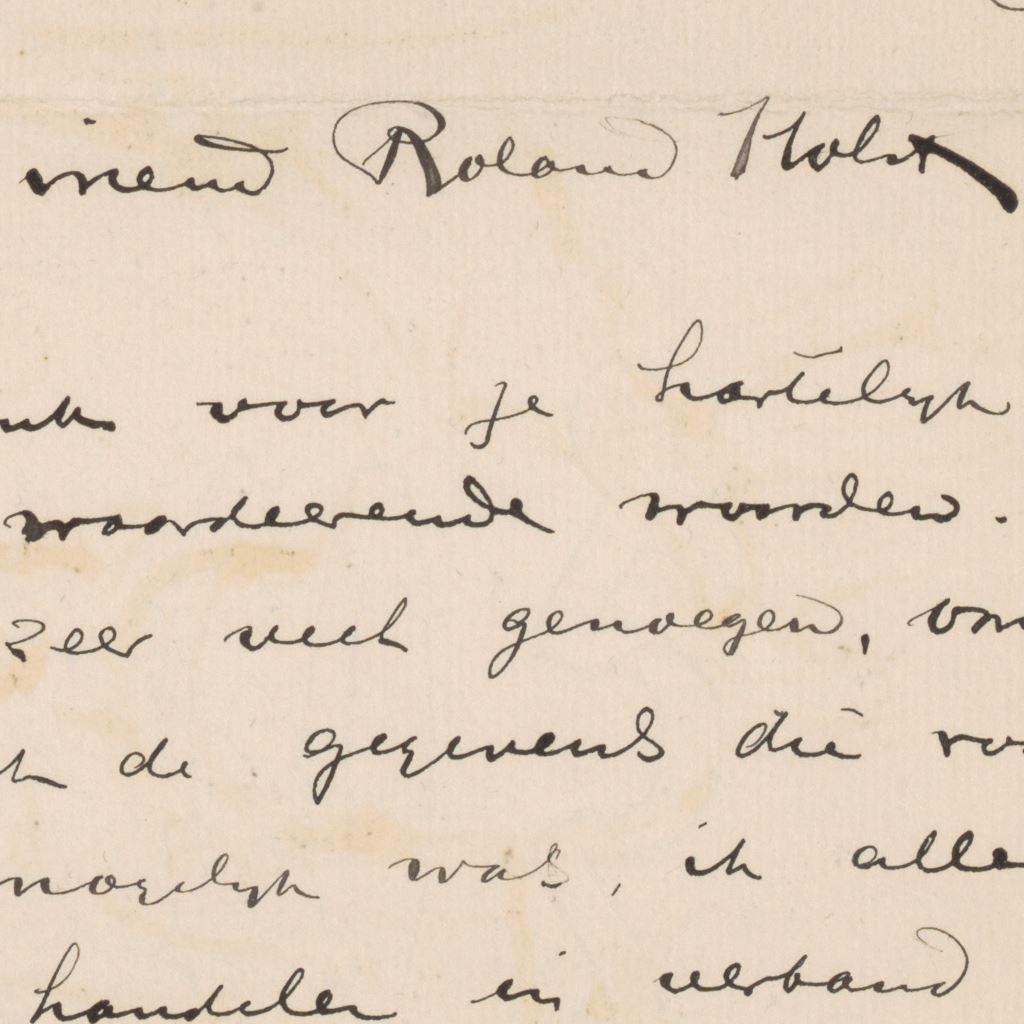 vriend Roland Holst
voor je hartelijk
waardeerende woorden.
zeer veel genoegen,
de gegevens die
mogelijk was, ik alle
handelen in verband